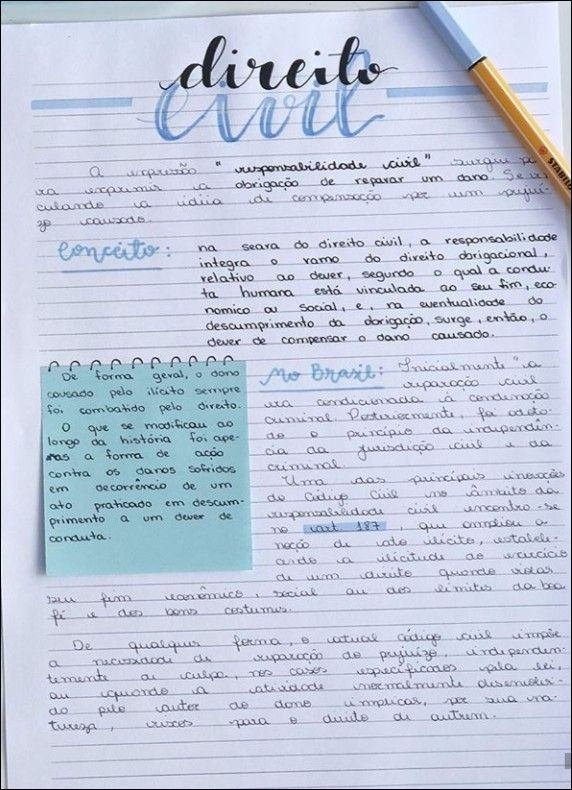 direito
civil
A expressão "responsabilidade civil" surgiu pa
ra exprimir a obrigação de reparar um dano. Se
culando a idéia de compensação por um prejuí-
zo causado.
Conceito:
na seara do direito civil, a responsabilidade
integra o ramo do direito obrigacional,
relativo ao dever, segundo o qual a condu-
ta humana está vinculada ao seu fim, eco
nomico ou social, e, na eventualidade do
descumprimento da obrigação, surge, então, o
dever de compensar o dano causado.
De forma geral, o dano
causado pelo ilícito sempre
foi combatido pelo direito.
O que se modificou ao
longo da história foi ape-
nas a forma de ação
contra os danos sofridos
em decorrência de um
ato praticado em descum-
primento a um dever de
conduta.
No Brasil: Inicialmente a
reparação civil
era condicionada à condenação
criminal. Posteriormente, foi adota-
do o princípio da independên-
cia da jurisdição civil e da
criminal.
Uma das principais inovações
do Código Civil no âmbito da
responsabilidade civil encontra-se
no art. 187, que ampliou a
noção de ato ilícito, estabele-
cendo a ilicitude do exercício
de um direito quando violar
seu fim econômico, social ou dos limites da boa
fé e dos bons costumes.
De qualquer forma, o atual código civil impõe
a necessidade de reparação do prejuízo, independen-
temente de culpa, nos casos especificados pela lei,
ou quando a atividade normalmente desenvolvi-
da pelo autor do dano implicar, por sua na-
tureza, riscos para o direito de outrem.
STABILO